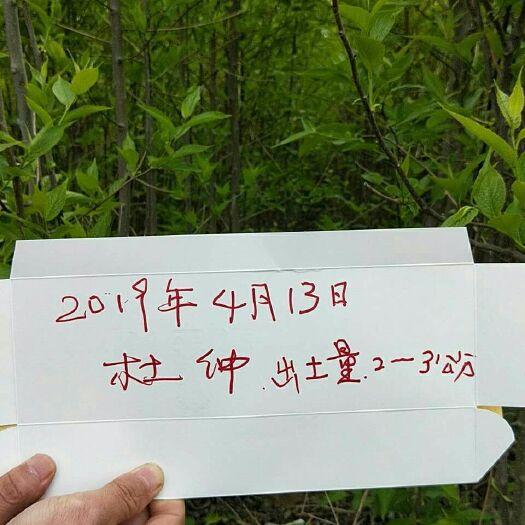 2019年4月13日
杜钟.出土量.2一3公分